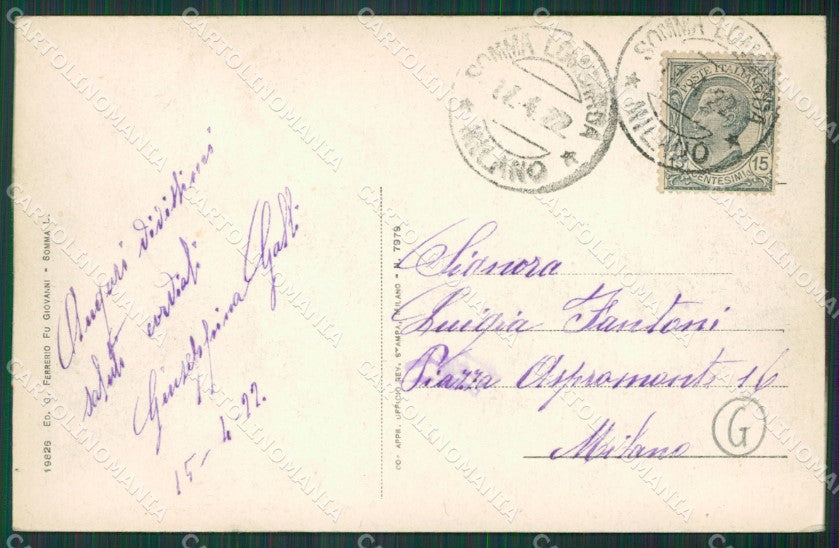 SOMMA LOMBARDA
17.4.22
* MILANO *
SOMMA LOMBARDA
22
* MILANO *
POSTE ITALIANE
15
CENTESIMI
15
Auguri vivissimi
saluti cordiali
Giuseppina Galli
15-4-22.
Signora
Luigia Fantoni
Piazza Aspromonte 16
Milano
G
19826 ED. G. FERRERIO FU GIOVANNI - SOMMA L.
CO- APP. UFFICIO REV. STAMPA, MILANO - N. 7979
CARTOLINOMANIA